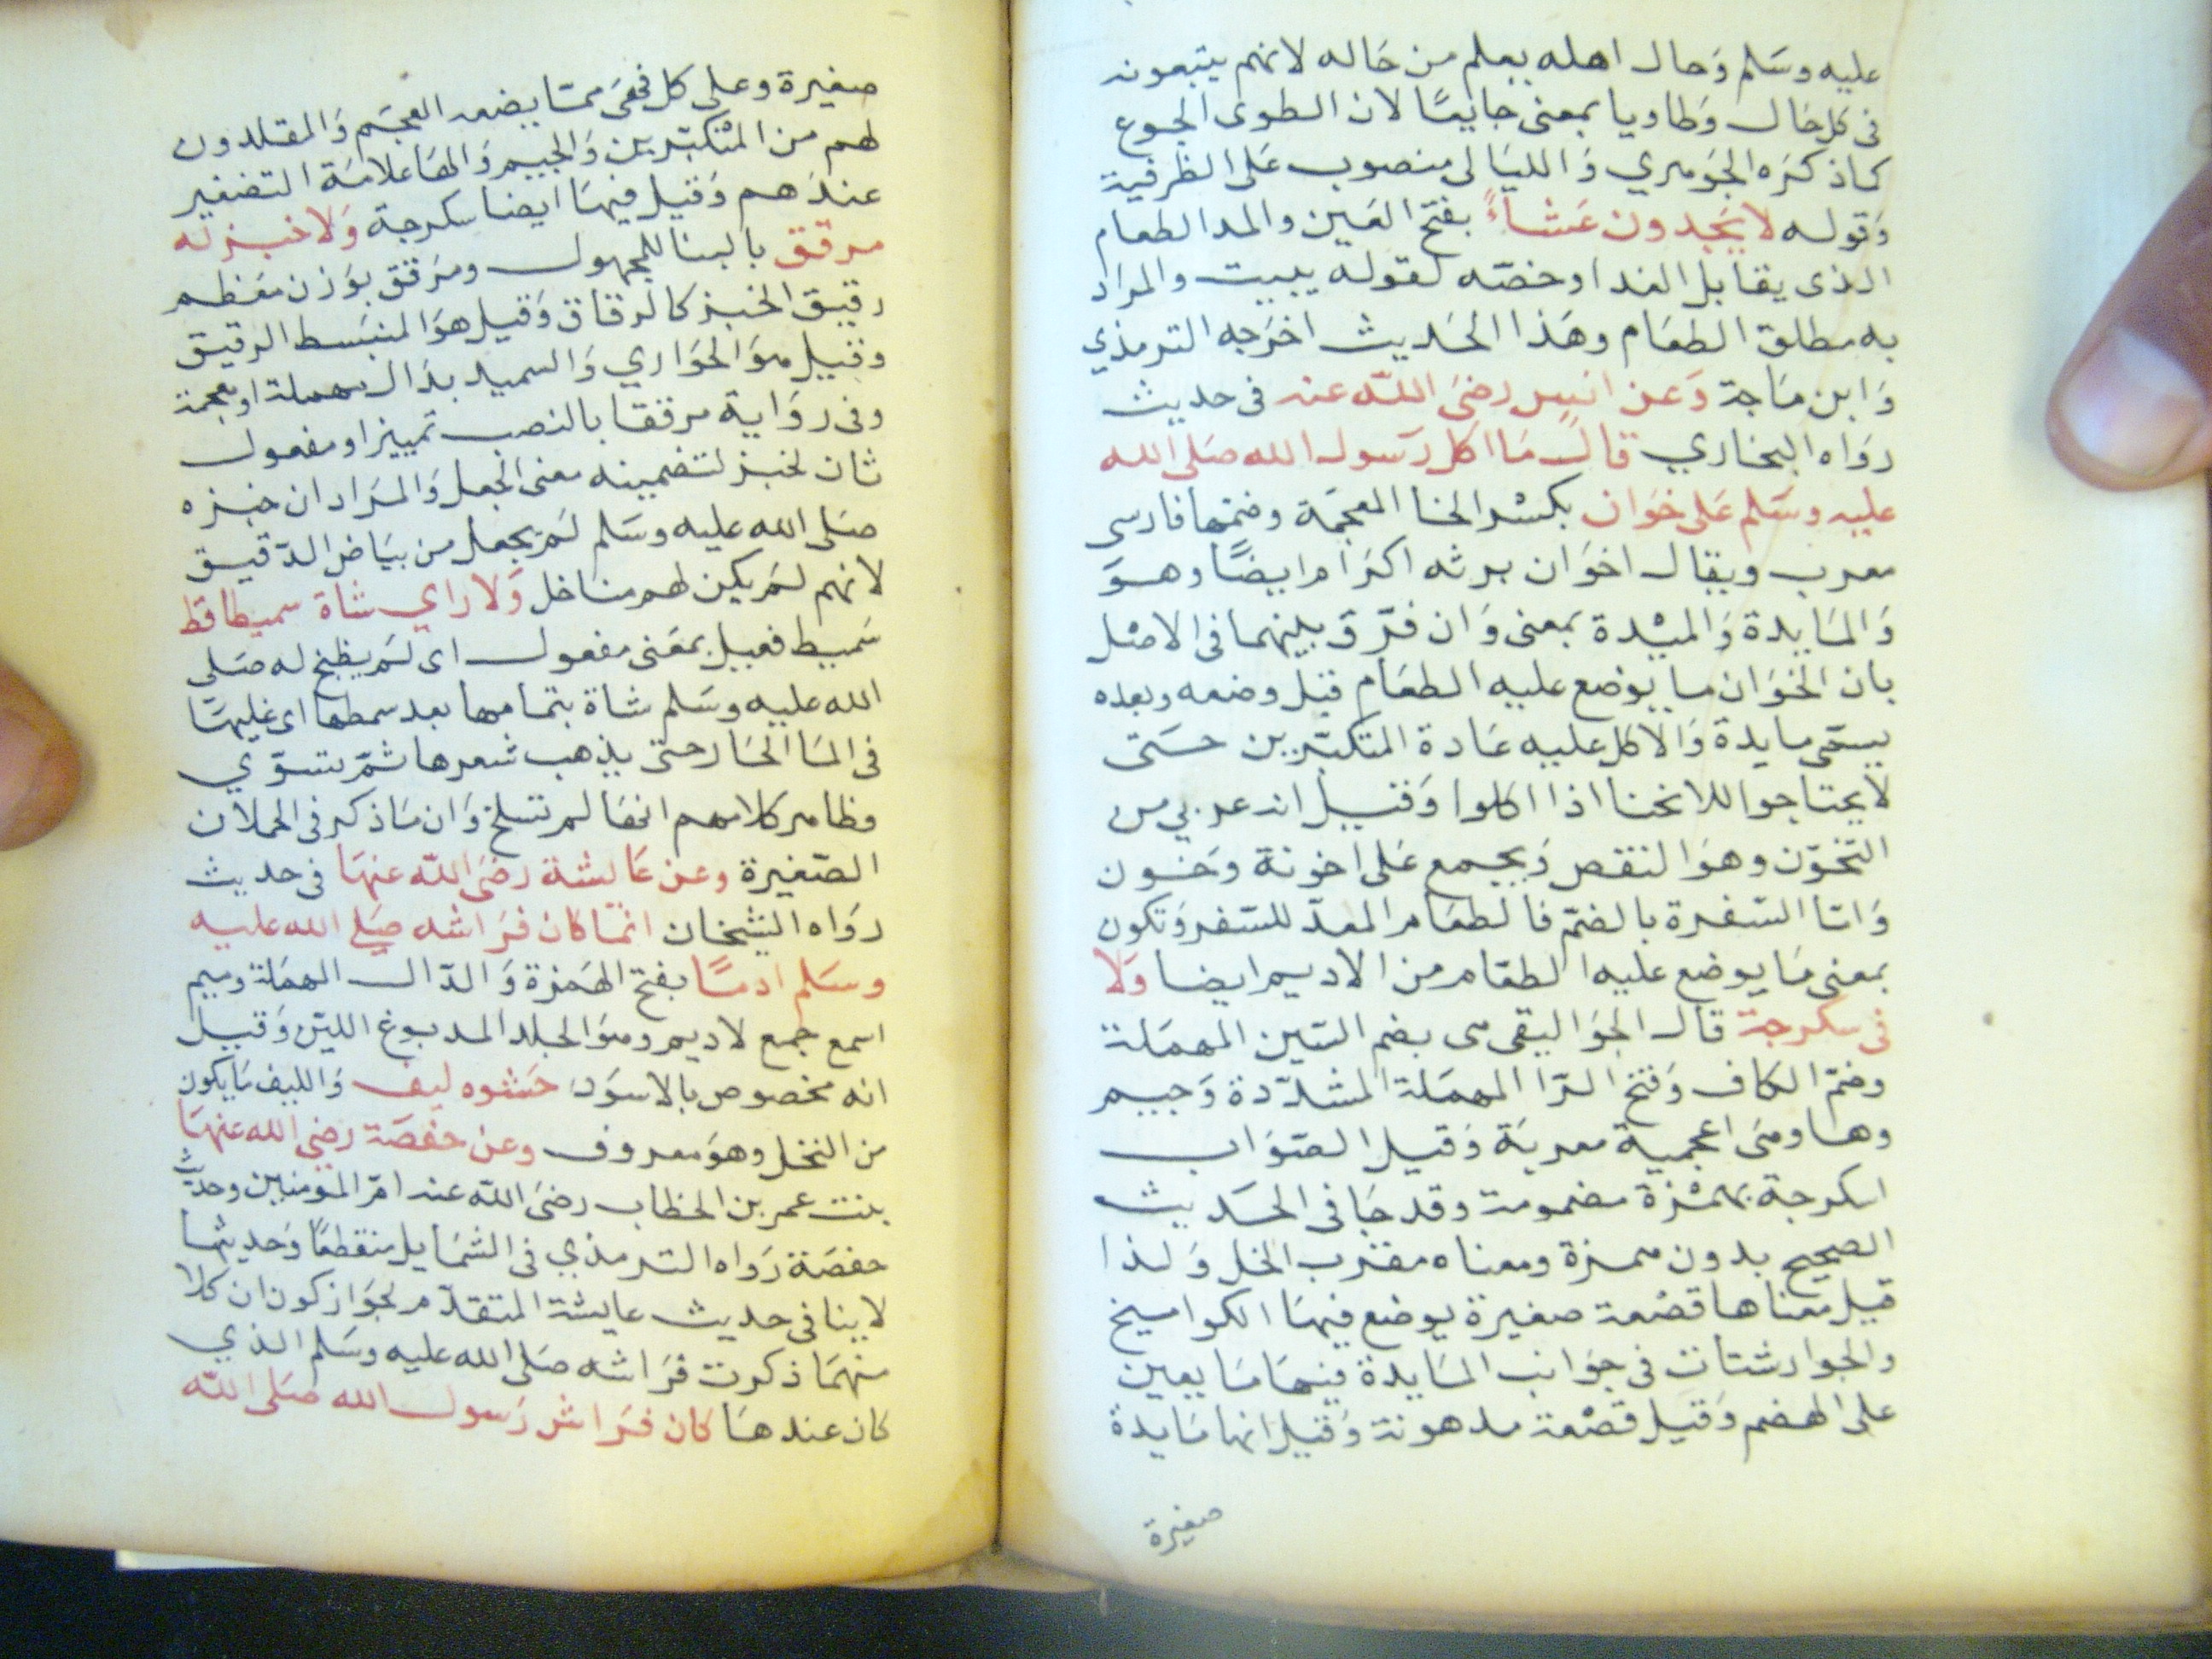 عليه وسَلم وَحال اهله يعلم من حَاله لانهم يتبعونه
فى كل حَال وَطاويا بمعنى جايعًا لان الطوى الجوع
كماذكرَه الجَوهري وَالليَالى منصوب عَلى الظرفية
وَقوله لا يَجدون عَشاءً بفتح العَين والمد الطعام
الذى يقابل الغدا وخصّه لقوله يبيت والمرَاد
به مطلق الطعَام وهَذا الحَديث اخرَجه الترمذي
وَابن مَاجة وَعن انس رضىَ اللّه عنه فى حديث
روَاه البخاري قال مَا اكل رَسول الله صَلى الله
عليه وسَلم عَلى خوَان بكسْر الخا المعجَمة وضمّها فارسى
معرب ويقال اخوَان برثه اكرَام ايضًا وهوَ
وَالمَايدة وَالميْدة بمعنى وَان فرّق بينهما فى الاصْل
بان الخوَان ما يوضع عليه الطعَام قبل وضعه وبعده
يسمّى مايدة وَالاكل عليه عَادة المتكبّرين حَتى
لا يحتاجوا للانحنا اذا اكلوا وَقيل انه عربي من
التخوّن وهوَ النقص وَيجمع عَلى اخونة وَخون
وَامّا السّفرة بالضمّ فالطعَام المعدّ للسّفر وَتكون
بمعنى مَا يوضع عليه الطعَام من الاديم ايضا وَلا
فى سكرجة قال الجوَاليقى هى بضم السّين المهمَلة
وضمّ الكاف وَفتح الرّا المهمَلة المشدّدة وَجيم
وها وهىَ اعجمية معربَة وَقيل الصّوَاب
اسكرجة بهمْزة مضمومة وقد جَا فى الحَديث
الصحيح بدون همزة ومعناه مقرب الخل وَلذا
قيل معناها قصْعة صغيرة يوضع فيهَا الكواميخ
والجوارشتات فى جوَانب المَايدة فيهَا مَا يعين
على الهضم وَقيل قصْعة مدهونة وَقيل انها مَايدة
صغيرة
صغيرة وعلى كل فهىَ ممّا يضعه العجَم وَالمقلدون
لهم من المتكبّرين وَالجيم وَالهَا علامَة التصْغير
عندَهم وَقيل فيهَا ايضا سكرجة وَلا خبز له
مرقق بالبنا للمجهول ومرَقق بوَزن معَظم
رقيق الخبز كالرقاق وَقيل هوَ المنبَسط الرقيق
وقيل هوَ الحوَاري وَالسميد بدَال مهملة او معجمة
وفى روَاية مرققا بالنصب تمييز او مفعول
ثان لخبز لتضمينه معنى الجعل وَالمرَاد ان خبزه
صَلى الله عليه وسَلم لَم يجعل من بيَاض الدّقيق
لانهم لَم يكن لهم مناخل وَلا راي شاة سميطا قط
سَميط فعيل بمعَنى مفعول اى لَم يطبخ له صَلى
الله عليه وسَلم شاة بتمامها بعد سمطها اى غليهَا
فى المَا الحَار حتى يذهب شعرها ثمّ تسوّي
وظاهر كلامهم انهَا لم تسلخ وَان مَا ذكر فى الحملان
الصّغيرة وعن عَايشة رضىَ اللّه عنهَا فى حديث
روَاه الشيخان انمّا كان فرَاشه صَلى الله عليه
وسَلم ادمًا بفتح الهَمزة وَالدّال المهمَلة وميم
اسمع جمع لاديم وهوَ الجلد المدبوغ الليّن وَقيل
انه مخصوص بالاسوَد حَشوه ليف وَالليف مَا يكون
من النخل وهوَ معروف وعن حفصَة رضى الله عنهَا
بنت عمر بن الخطاب رضىَ اللّه عنه امّ المومنين وحديث
حفصَة رَواه الترمذي فى الشمَايل منقطعًا وَحديثها
لا ينافى حديث عايشة المتقدّم لجوَاز كون ان كلا
منهمَا ذكرت فرَاشه صَلى الله عليه وسَلم الذي
كان عندهَا كان فرَاش رَسول الله صَلى اللّه